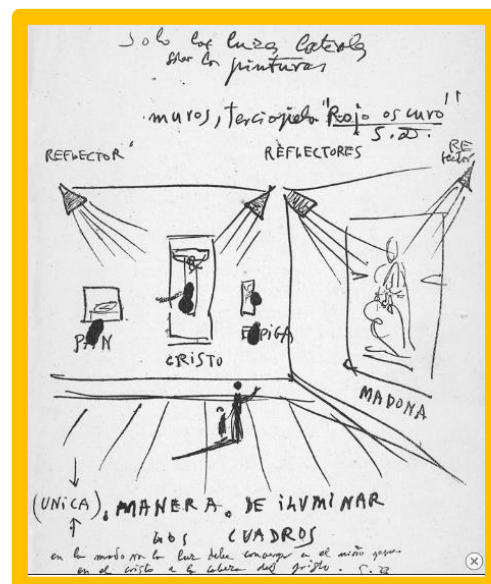 Solo las luces laterales
sobre las pinturas
muros, terciopelo "Rojo oscuro"
S.D.
REFLECTOR
REFLECTORES
RE
flector
PAN
CRISTO
ESPIGA
MADONA
(UNICA) MANERA DE ILUMINAR
LOS CUADROS
en la madona la luz debe converger en el niño
en el cristo a la cabeza del cristo.